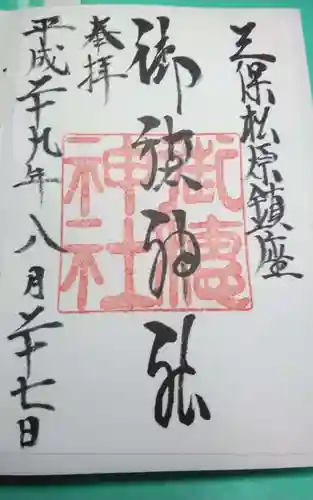 三保松原鎮座
御穂神社
御穗神社
奉拝
平成二十九年八月二十七日